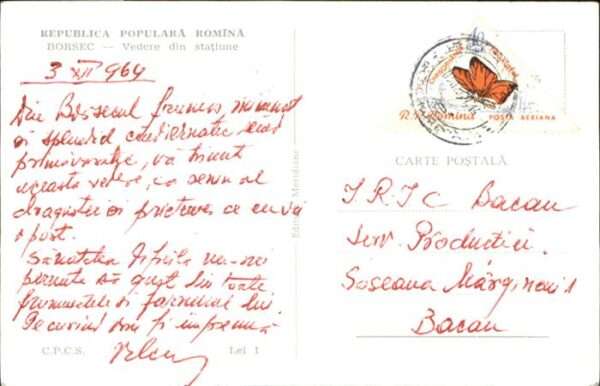 REPUBLICA POPULARĂ ROMÎNĂ
BORSEC — Vedere din stațiune
3 XII 964
Din Borsecul frumos minunat
și splendid
primăvaratic, vă trimit
aceasta vedere, ca semn al
dragostei și prieteniei ce cu voi
o port.
Sănătatea nu-mi
permite să gust din toate
frumusețile și farmecul lui.
Pe curînd vom fi împreună
C.P.C.S.
Lei 1
Meridiane
R. P. Romînă POȘTA AERIANĂ
CARTE POȘTALĂ
I.R.I.C Bacau
Serv. Productiei
Soseaua Mărginenii
Bacau